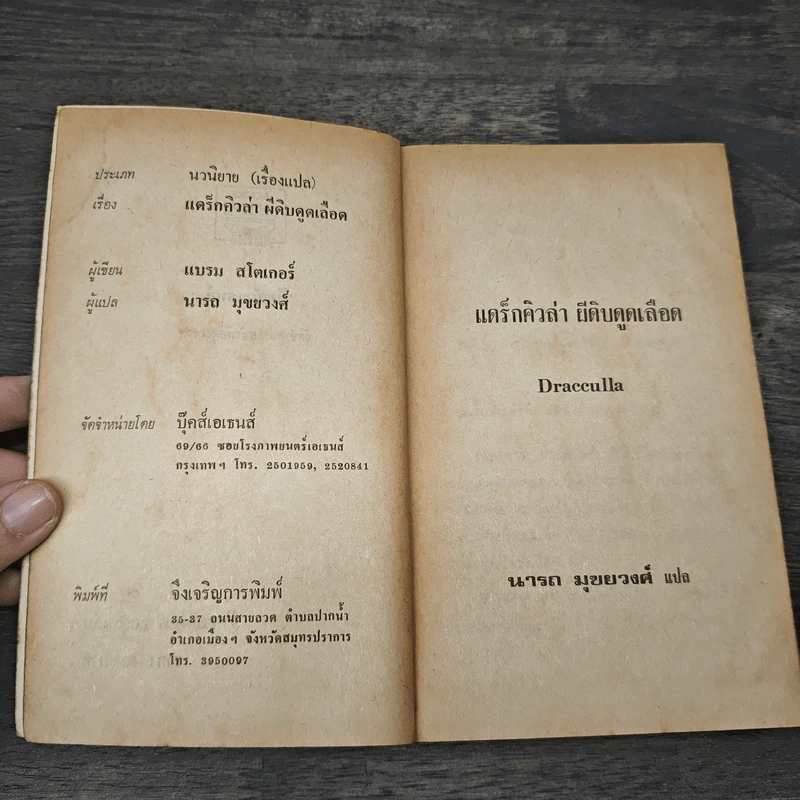 ประเภท นวนิยาย (เรื่องแปล)
เรื่อง แดร็กคิวล่า ผีดิบดูดเลือด
ผู้เขียน แบรม สโตเกอร์
ผู้แปล นารถ มุขยวงศ์
จัดจำหน่ายโดย บุ๊คส์เอเธนส์
69/66 ซอยโรงภาพยนตร์เอเธนส์
กรุงเทพฯ โทร. 2501959, 2520841
พิมพ์ที่ จึงเจริญการพิมพ์
35-37 ถนนสายลวด ตำบลปากน้ำ
อำเภอเมืองฯ จังหวัดสมุทรปราการ
โทร. 3950097
แดร็กคิวล่า ผีดิบดูดเลือด
Dracculla
นารถ มุขยวงศ์ แปล